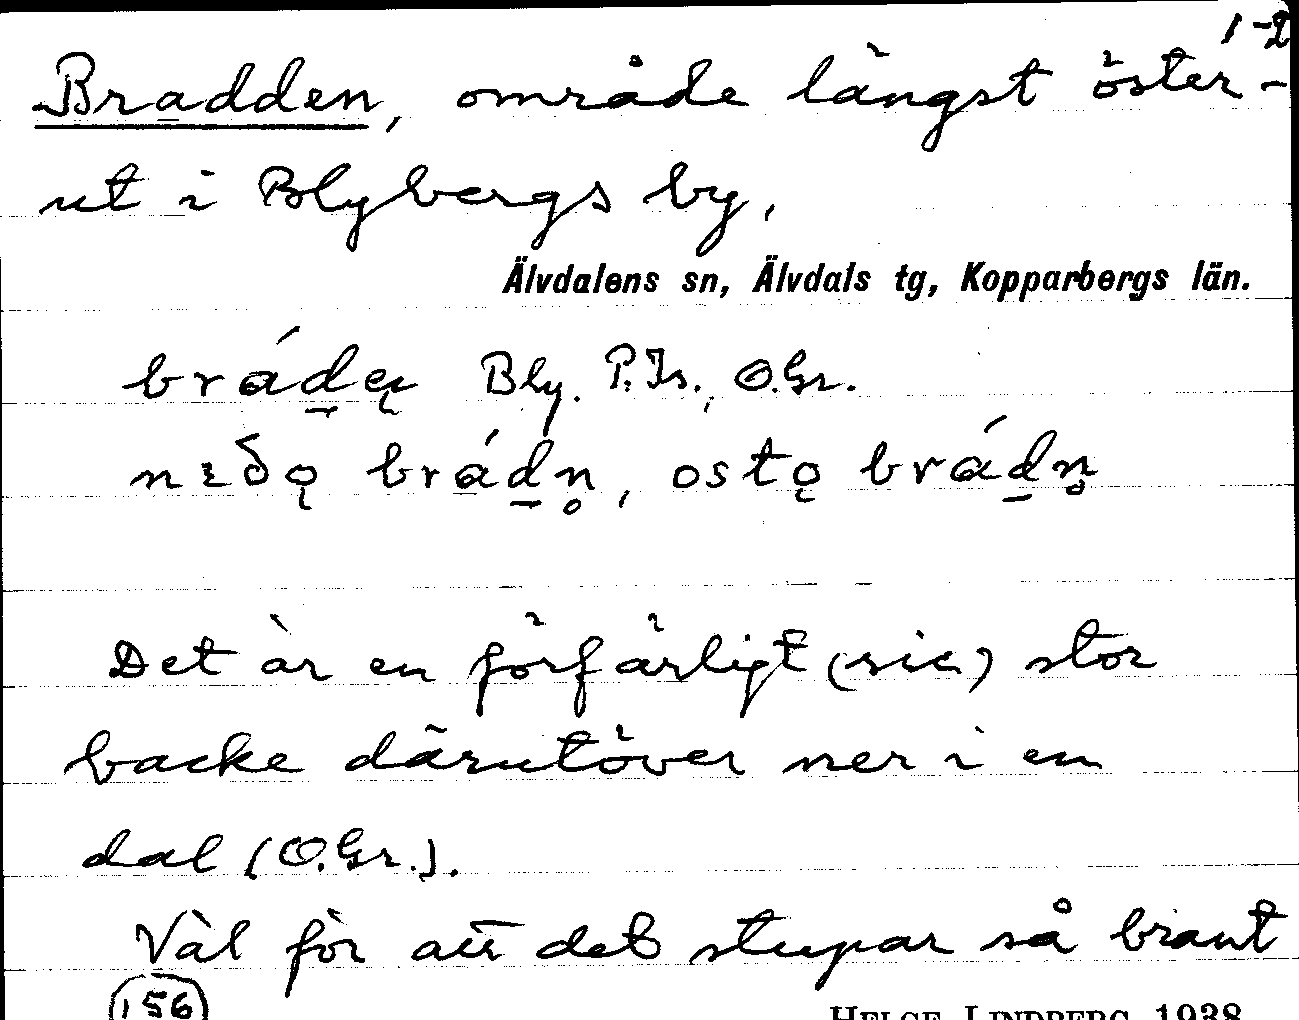 1-2
Bradden, område längst öster-
ut i Blybergs by,
Älvdalens sn, Älvdals tg, Kopparbergs län.
brá̱ḏę Bly. P.Is., O.Gr.
nɪðǫ brá̱ḏn̥, ostǫ brá̱ḏn̥
Det är en förfärligt (sic) stor
backe därutöver ner i en
dal (O.Gr.).
Väl för att det stupar så brant
156
HELGE LINDBERG 1938